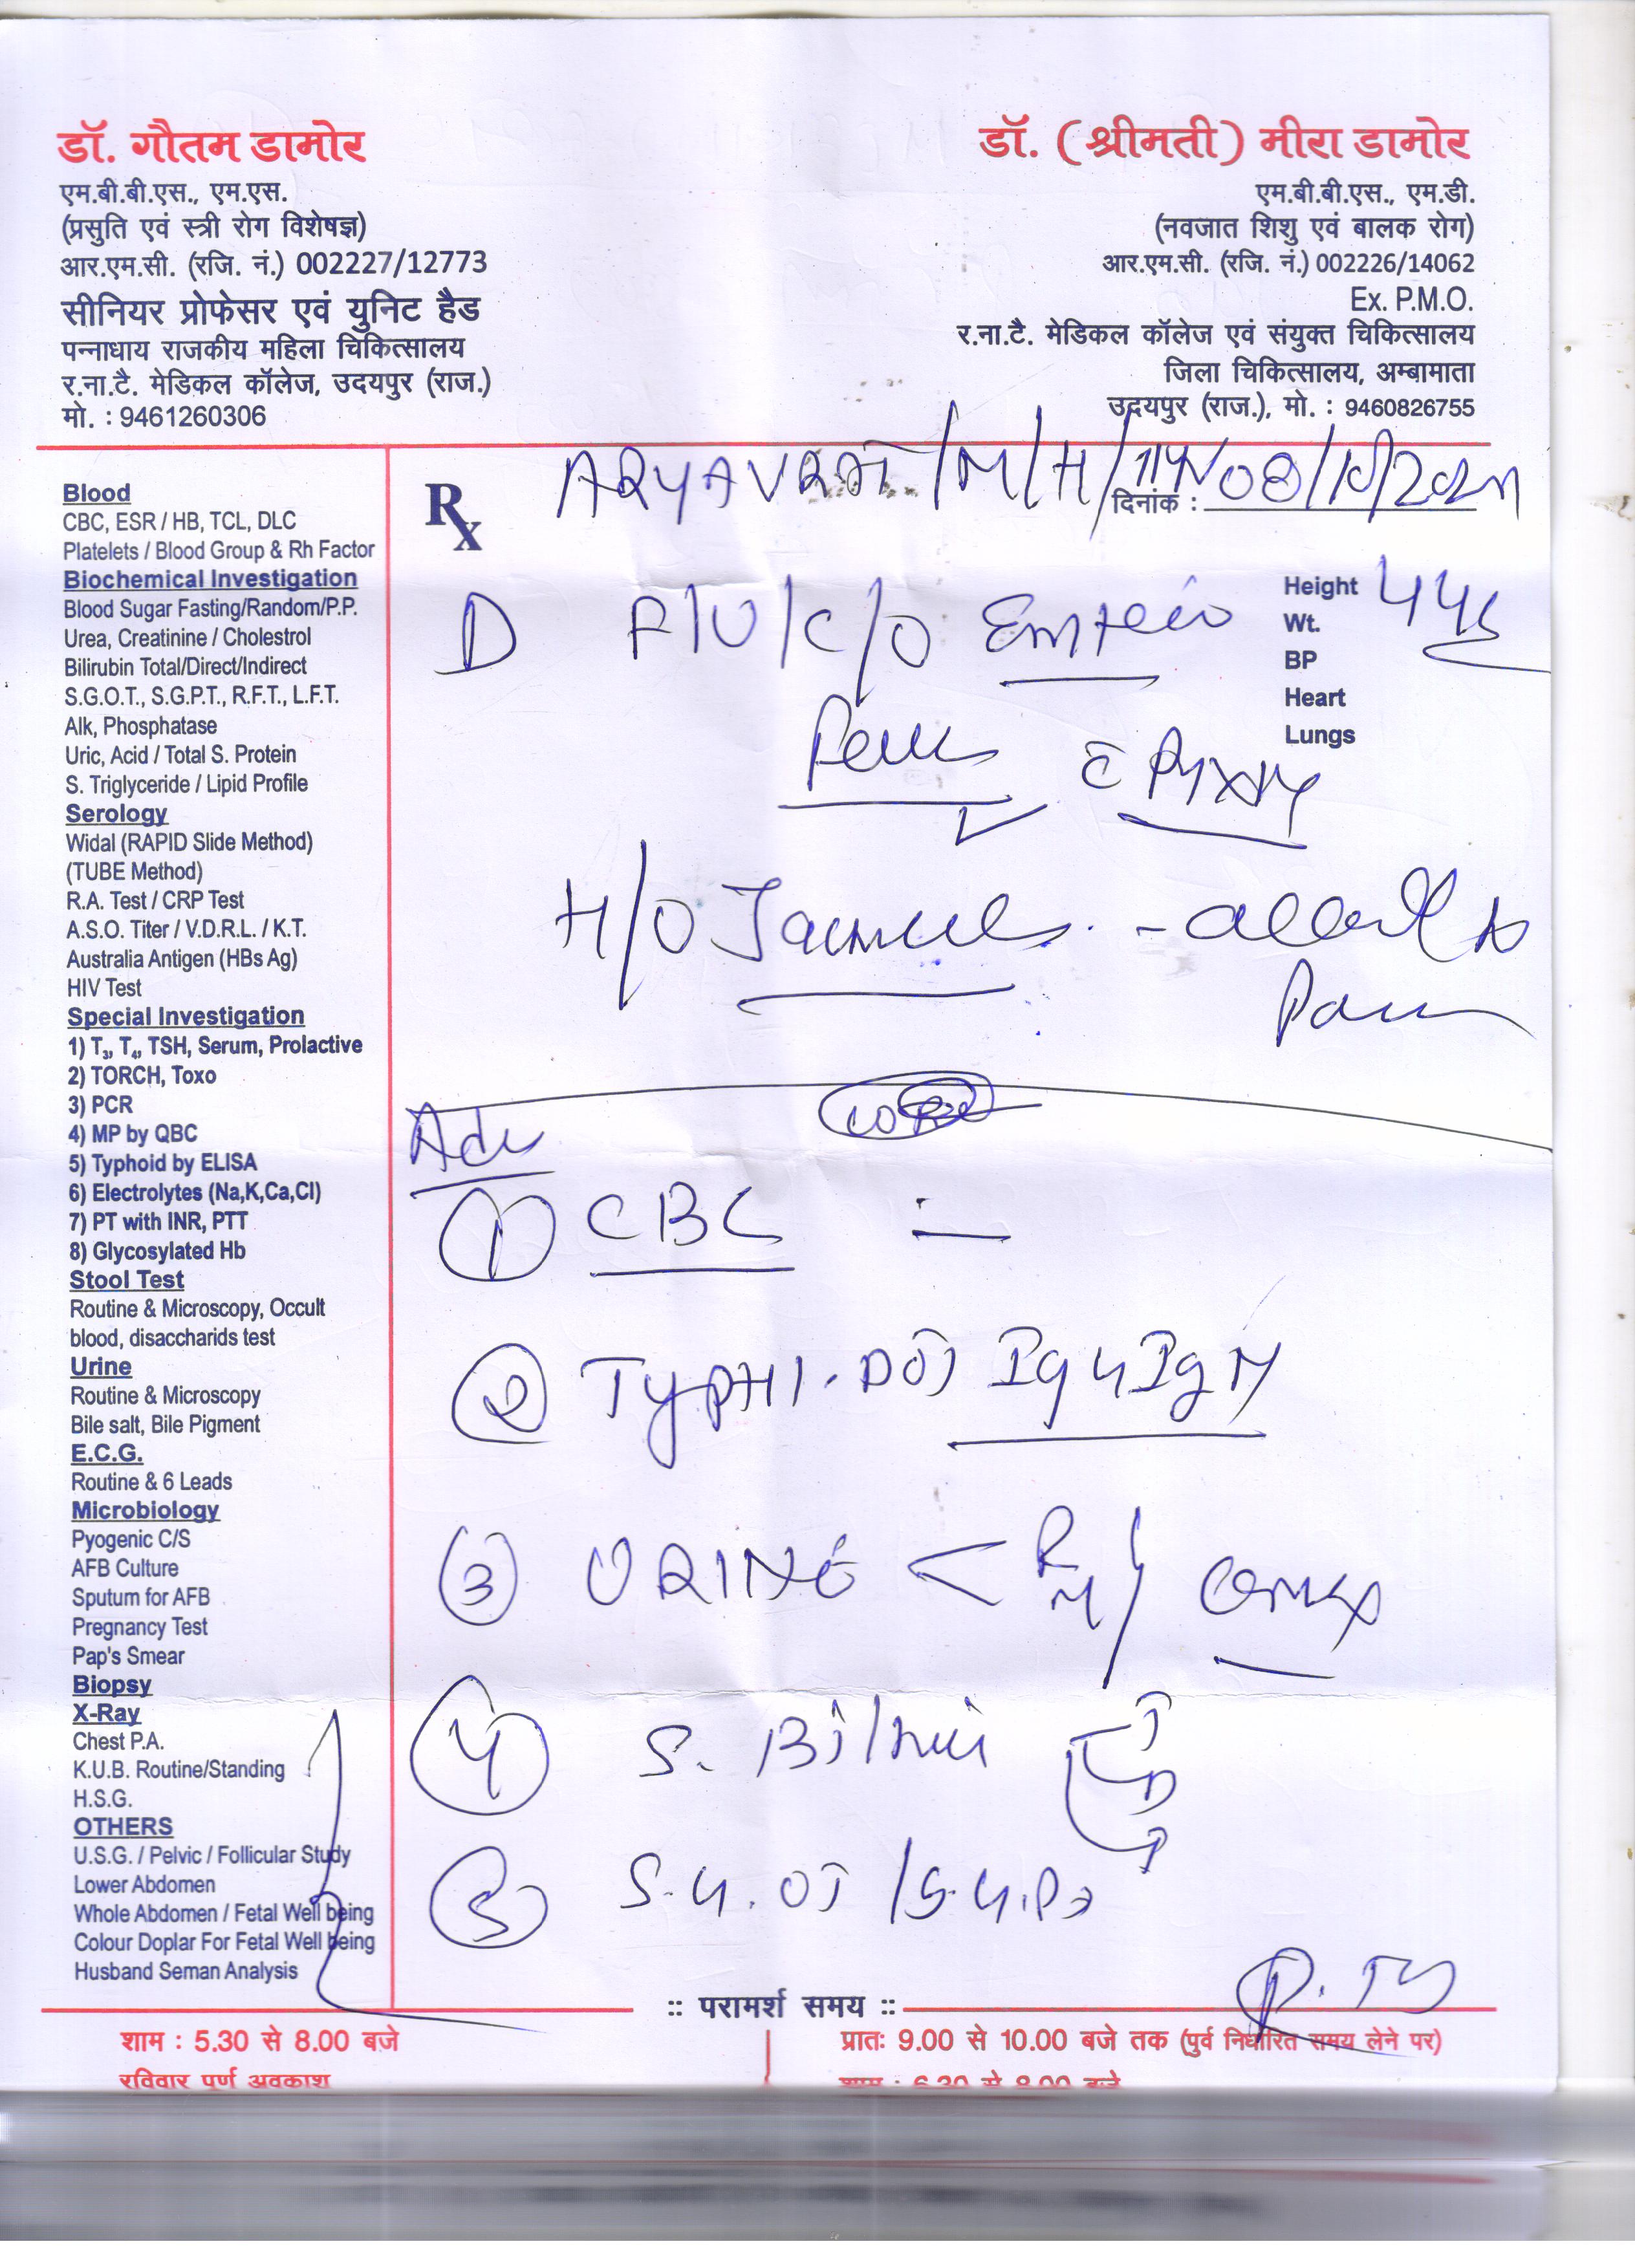 डॉ. गौतम डामोर
एम.बी.बी.एस., एम.एस.
(प्रसुति एवं स्त्री रोग विशेषज्ञ)
आर.एम.सी. (रजि. नं.) 002227/12773
सीनियर प्रोफेसर एवं युनिट हैड
पन्नाधाय राजकीय महिला चिकित्सालय
र.ना.टै. मेडिकल कॉलेज, उदयपुर (राज.)
मो. : 9461260306
डॉ. (श्रीमती) मीरा डामोर
एम.बी.बी.एस., एम.डी.
(नवजात शिशु एवं बालक रोग)
आर.एम.सी. (रजि. नं.) 002226/14062
Ex. P.M.O.
र.ना.टै. मेडिकल कॉलेज एवं संयुक्त चिकित्सालय
जिला चिकित्सालय, अम्बामाता
उदयपुर (राज.), मो. : 9460826755
Blood
CBC, ESR / HB, TCL, DLC
Platelets / Blood Group & Rh Factor
Biochemical Investigation
Blood Sugar Fasting/Random/P.P.
Urea, Creatinine / Cholestrol
Bilirubin Total/Direct/Indirect
S.G.O.T., S.G.P.T., R.F.T., L.F.T.
Alk, Phosphatase
Uric, Acid / Total S. Protein
S. Triglyceride / Lipid Profile
Serology
Widal (RAPID Slide Method)
(TUBE Method)
R.A. Test / CRP Test
A.S.O. Titer / V.D.R.L. / K.T.
Australia Antigen (HBs Ag)
HIV Test
Special Investigation
1) T3, T4, TSH, Serum, Prolactive
2) TORCH, Toxo
3) PCR
4) MP by QBC
5) Typhoid by ELISA
6) Electrolytes (Na,K,Ca,Cl)
7) PT with INR, PTT
8) Glycosylated Hb
Stool Test
Routine & Microscopy, Occult
blood, disaccharids test
Urine
Routine & Microscopy
Bile salt, Bile Pigment
E.C.G.
Routine & 6 Leads
Microbiology
Pyogenic C/S
AFB Culture
Sputum for AFB
Pregnancy Test
Pap's Smear
Biopsy
X-Ray
Chest P.A.
K.U.B. Routine/Standing
H.S.G.
OTHERS
U.S.G. / Pelvic / Follicular Study
Lower Abdomen
Whole Abdomen / Fetal Well being
Colour Doplar For Fetal Well being
Husband Seman Analysis
Rx ARYAVRAT /M/H/
दिनांक : 08/10/202
Height
Wt.
BP
Heart
Lungs
F/U/C/O
H/O
Adv
1 CBC
2 TYPHI. DOT IgG IgM
3 URINE < R/M
4 S. T D I
5 S.G.OT / S.G.PT
:: परामर्श समय ::
शाम : 5.30 से 8.00 बजे
रविवार पूर्ण अवकाश
प्रातः 9.00 से 10.00 बजे तक (पुर्व निर्धारित समय लेने पर)
शाम : 6.30 से 8.00 बजे